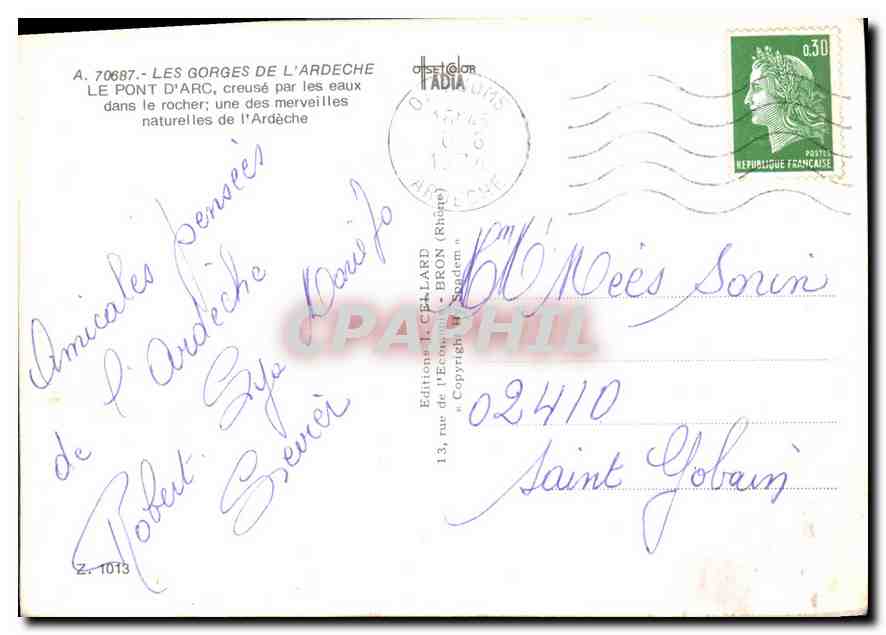 A. 70687.- LES GORGES DE L'ARDECHE
LE PONT D'ARC, creusé par les eaux
dans le rocher; une des merveilles
naturelles de l'Ardèche
OFFSET COLOR
IADIA
ARDECHE
0,30
POSTES
REPUBLIQUE FRANÇAISE
Amicales pensées
de l'Ardèche
Robert
Z. 1013
Editions J. CELLARD
13, rue de l'Economie - BRON (Rhône)
« Copyright by Spadem »
CPAPHIL
Sorin
02410
Saint Gobain